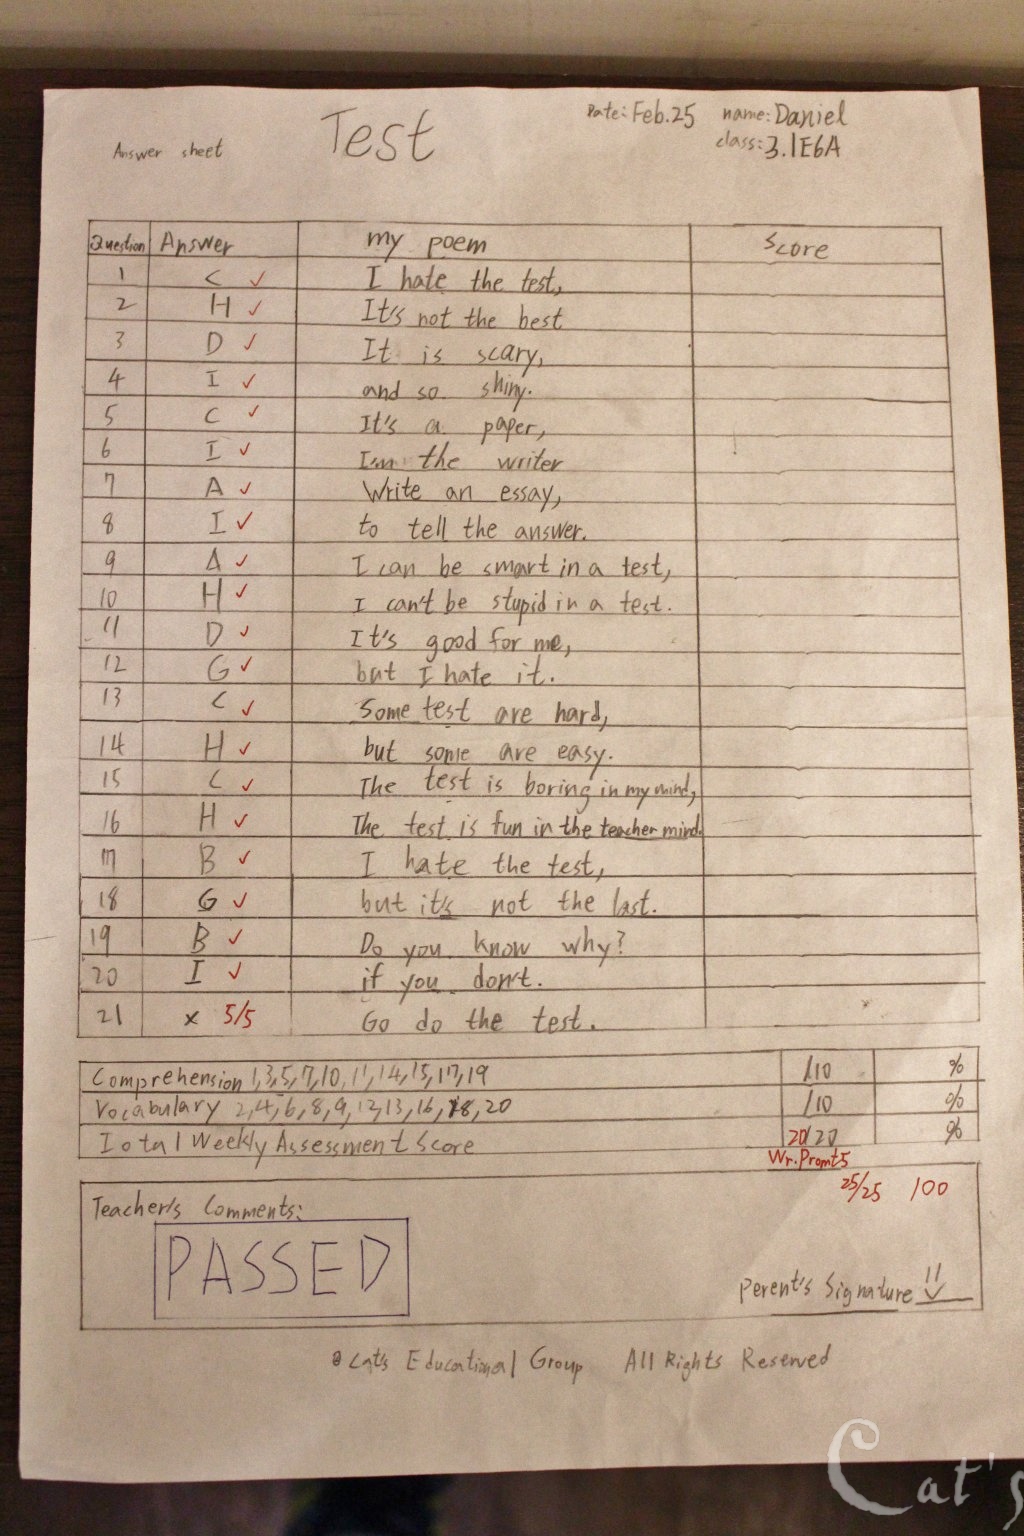 Answer sheet Test Date: Feb.25 name: Daniel
class: 3.1E6A
Question Answer my poem Score
1 C ✓ I hate the test,
2 H ✓ It's not the best
3 D ✓ It is scary,
4 I ✓ and so shiny.
5 C ✓ It's a paper,
6 I ✓ I'm the writer
7 A ✓ Write an essay,
8 I ✓ to tell the answer.
9 A ✓ I can be smart in a test,
10 H ✓ I can't be stupid in a test.
11 D ✓ It's good for me,
12 G ✓ but I hate it.
13 C ✓ Some test are hard,
14 H ✓ but some are easy.
15 C ✓ The test is boring in my mind,
16 H ✓ The test is fun in the teacher mind.
17 B ✓ I hate the test,
18 G ✓ but it's not the last.
19 B ✓ Do you know why?
20 I ✓ if you don't.
21 x 5/5 Go do the test.
Comprehension 1,3,5,7,10,11,14,15,17,19 /10 %
Vocabulary 2,4,6,8,9,12,13,16,18,20 /10 %
Total Weekly Assessment Score 20/20 %
Wr.Promt 5
25/25 100
Teacher's Comments:
PASSED
Perent's Signature
Cat's Educational Group All Rights Reserved
Cat's